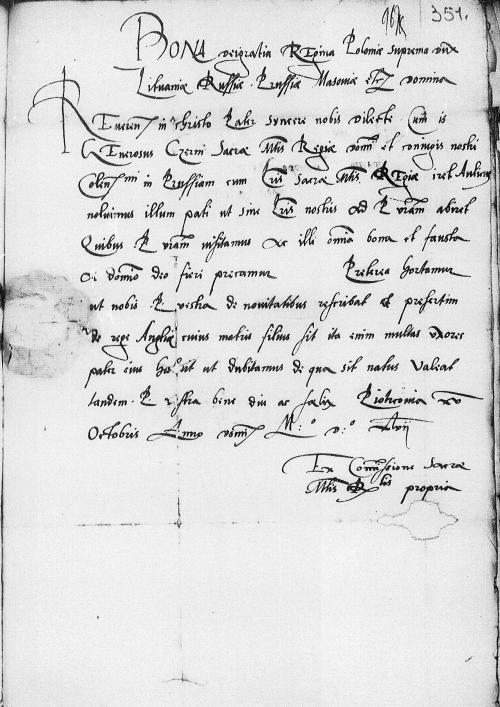 351.
BONA dei gratia Regina Poloniae suprema dux
Lituaniae Russiae Prussiae Masoviae etc domina
Reverend in christo Pater syncere nobis dilecte Cum is
Generosus Sacrae Mtis Regiae domini et coniugis nostri
Colen in Prussiam cum Sacrae Mtis Regiae iret
noluimus illum pati ut sine nostris ad P vram abiret
Quibus P vram visitamus ac illi omnia bona et fausta
a domino deo fieri precamur Preterea hortamur
ut nobis P vestra de novitatibus rescribat et presertim
de rege Angliae cuius matris filius sit ita enim multas uxores
pater eius ut dubitamus de qua sit natus Valeat
tandem P vestra bene diu ac foelix Piotrcovia xv
Octobris Anno domini M: o D: o
Ex Commissione Sacrae
Mtis propria